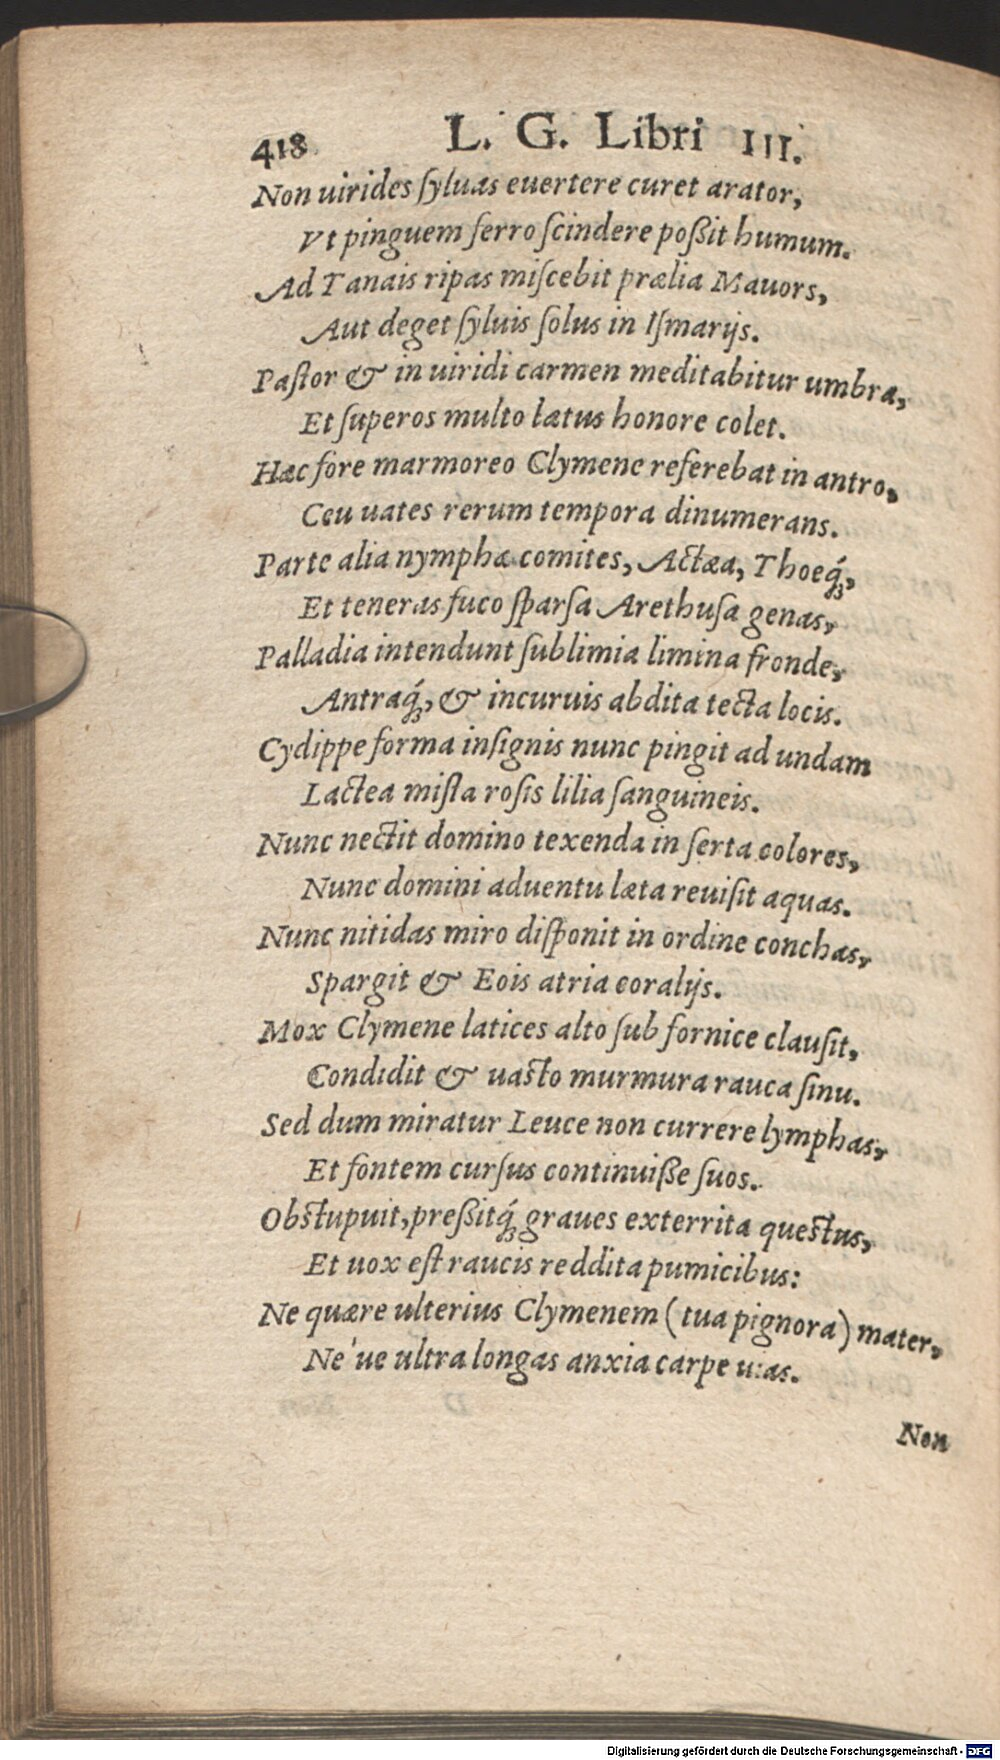 418 L. G. Libri III.
Non uirides ſyluas euertere curet arator,
Vt pinguem ferro ſcindere poßit humum.
Ad Tanais ripas miſcebit prælia Mauors,
Aut deget ſyluis ſolus in Iſmarijs.
Paſtor & in uiridi carmen meditabitur umbra,
Et ſuperos multo lætus honore colet.
Hæc fore marmoreo Clymene referebat in antro,
Ceu uates rerum tempora dinumerans.
Parte alia nymphæ comites, Actæa, Thoeq́;,
Et teneras fuco ſparſa Arethuſa genas,
Palladia intendunt ſublimia limina fronde,
Antraq́;, & incuruis abdita tecta locis.
Cydippe forma inſignis nunc pingit ad undam
Lactea miſta roſis lilia ſanguineis.
Nunc nectit domino texenda in ſerta colores,
Nunc domini aduentu læta reuiſit aquas.
Nunc nitidas miro diſponit in ordine conchas,
Spargit & Eois atria coralijs.
Mox Clymene latices alto ſub fornice clauſit,
Condidit & uasto murmura rauca ſinu.
Sed dum miratur Leuce non currere lymphas,
Et fontem curſus continuiße ſuos.
Obstupuit, preßitq́; graues exterrita questus,
Et uox eſt raucis reddita pumicibus:
Ne quære ulterius Clymenem (tua pignora) mater,
Ne'ue ultra longas anxia carpe uias.
Non
Digitalisierung gefördert durch die Deutsche Forschungsgemeinschaft - DFG